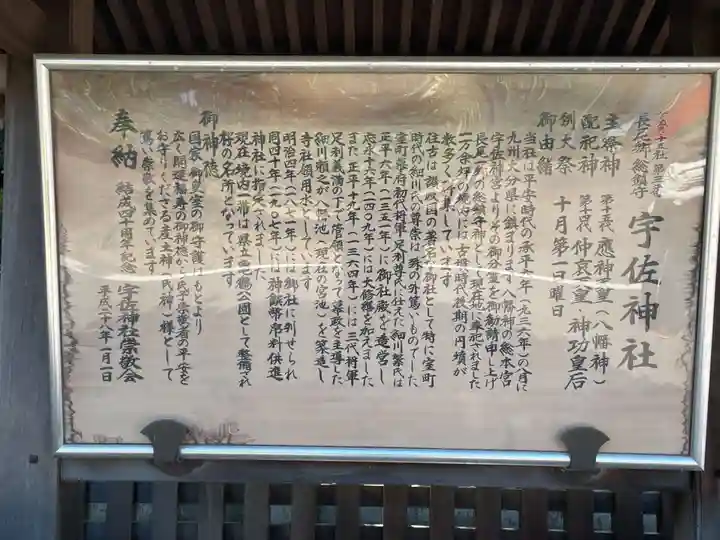 長尾街総鎮守
宇佐神社
主祭神 第十五代 應神天皇(八幡神)
配祀神 第十四代 仲哀天皇・神功皇后
例大祭 十月第一日曜日
御由緒
当社は平安時代の承平六年(九三六年)の八月に
九州大分県に鎮まります八幡神の総本宮
宇佐神宮よりその御分霊を御勧請申し上げ
長尾街の総鎮守神として現在地に奉祀されました
一万余坪の境内には古墳時代後期の円墳が
数多く存在しています
往古は讃岐国の著名な御社として特に室町
時代の細川氏の尊崇は殊の外篤いものでした
室町幕府初代将軍・足利尊氏に仕えた細川繁氏は
正平六年(一三五一年)に御社殿を造営し
応永十六年(一四〇九年)には大修理を加えました
また正平十九年(一三六四年)には三代将軍
足利義満の下で管領となって幕政を主導した
細川頼之が八幡池(現社の宮池)を築造し
寺社領用水としています
明治四年(一八七一年)には郷社に列せられ
同四十年(一九〇七年)には神饌幣帛料供進
神社に指定されました
現在境内一帯は県立亀鶴公園として整備され
桜の名所となっています
御神徳
国家・御皇室の御守護はもとより
広く開運福寿の御神徳から氏子崇敬者の平安を
お守りくださる産土神(氏神)様として
篤い崇敬を集めています
奉納 結成四十周年記念 宇佐神社崇敬会
平成二十八年一月一日